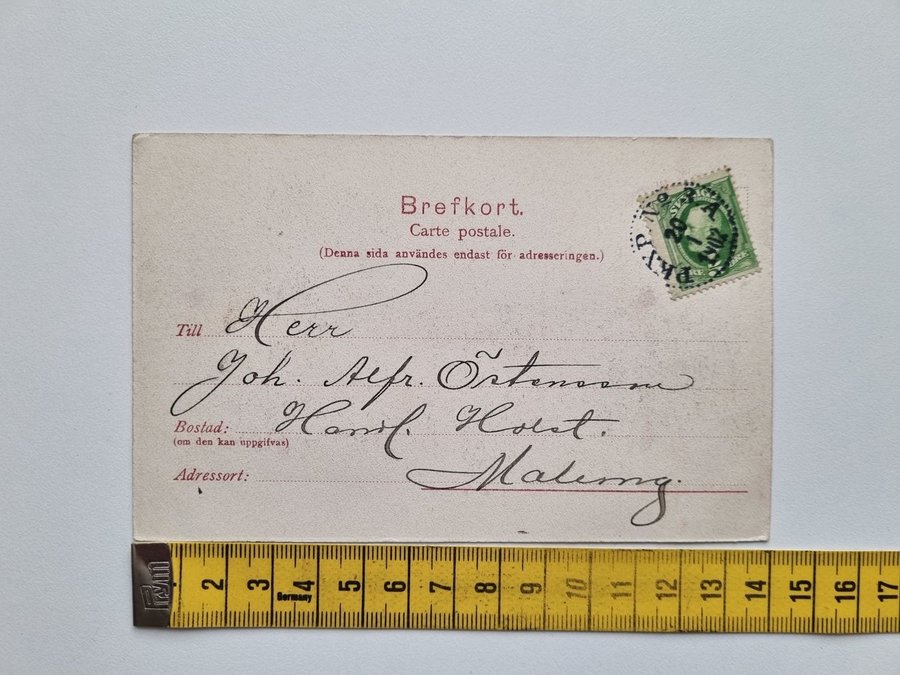 Brefkort.
Carte postale.
(Denna sida användes endast för adresseringen.)
PKXP No 2 A
29
1
1902
Till Herr
Joh. Alfr. Östensson
Bostad: Handl. Holst.
(om den kan uppgifvas)
Adressort: Malung.
2 3 4 5 6 7 8 9 10 11 12 13 14 15 16 17
Germany